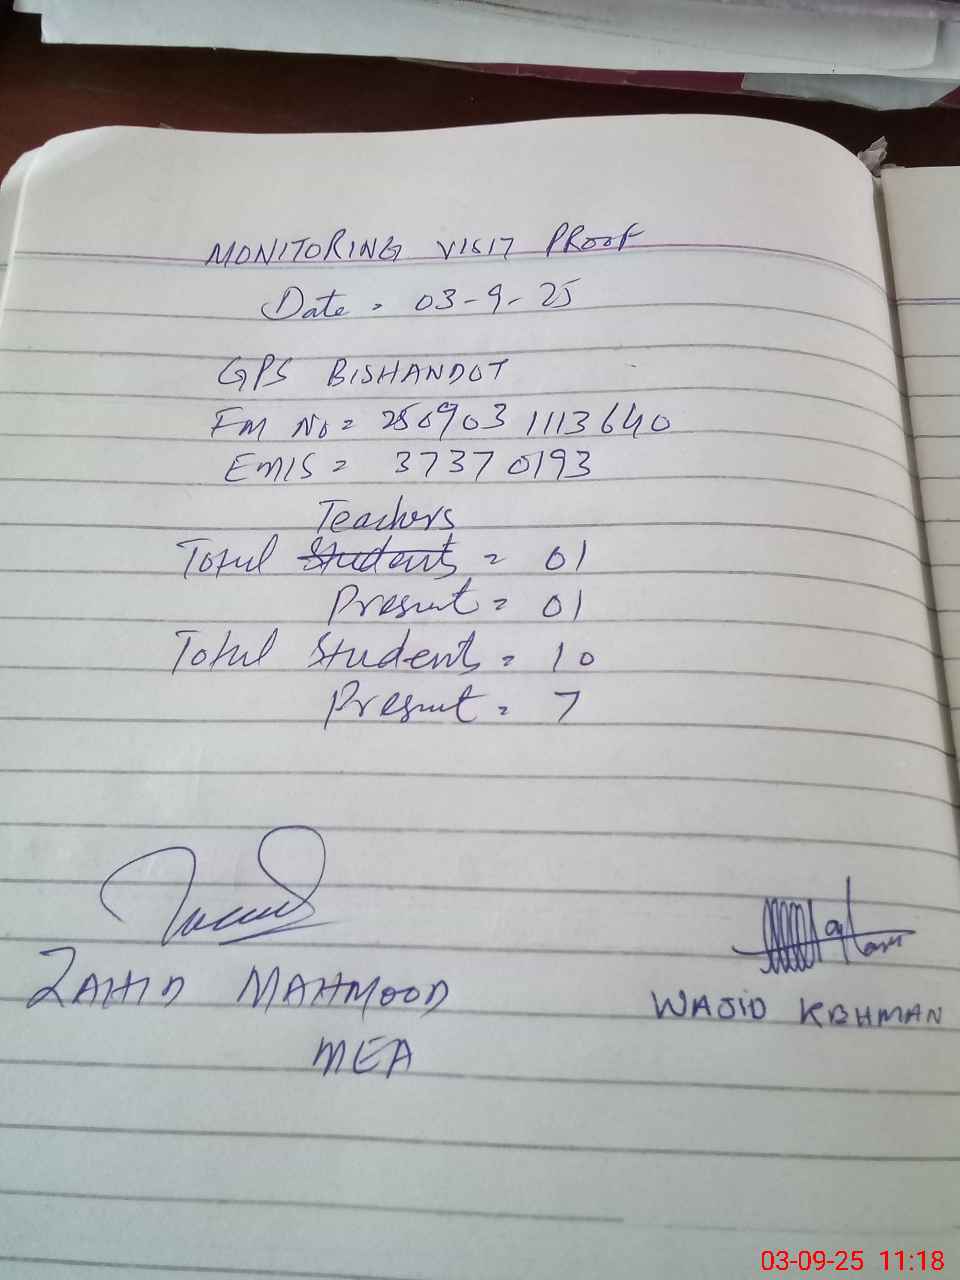 MONITORING VISIT PROOF
Date = 03-9-25
GPS BISHANDOT
Fm No = 250903 1113640
EMIS = 37370193
Teachers
Total Students = 01
Present = 01
Total Students = 10
Present = 7
ZAHID MAHMOOD
WAJID
MEA
03-09-25 11:18